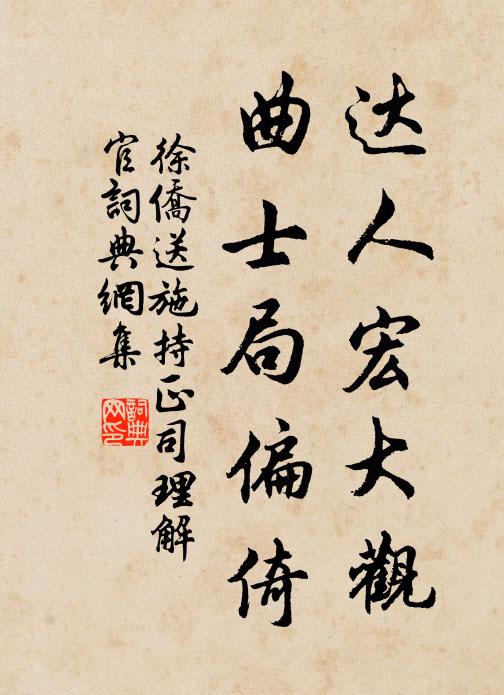 达人宏大觀
曲士局偏倚
徐僑送施持正司理解
官詞典網集
詞典
网印